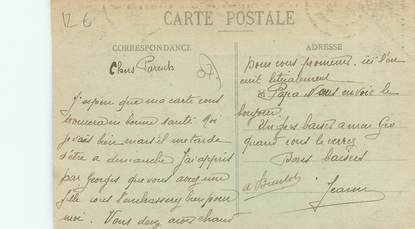 12 €
CARTE POSTALE
CORRESPONDANCE
ADRESSE
Chers Parents
J'espère que ma carte vous
trouvera en bonne santé. Moi
je vais bien mais il me tarde
d'être a dimanche J'ai appris
par Georges que vous avez une
fille vous l'embrasserez bien pour
moi. Vous devez avoir chaud
pour vous promener. ici l'on
cuit litéralement
Papa vous envoie le
bonjour.
Un gros baiser a ma
quand vous le verrez
Bons baisers
a Bientôt
Jeanne